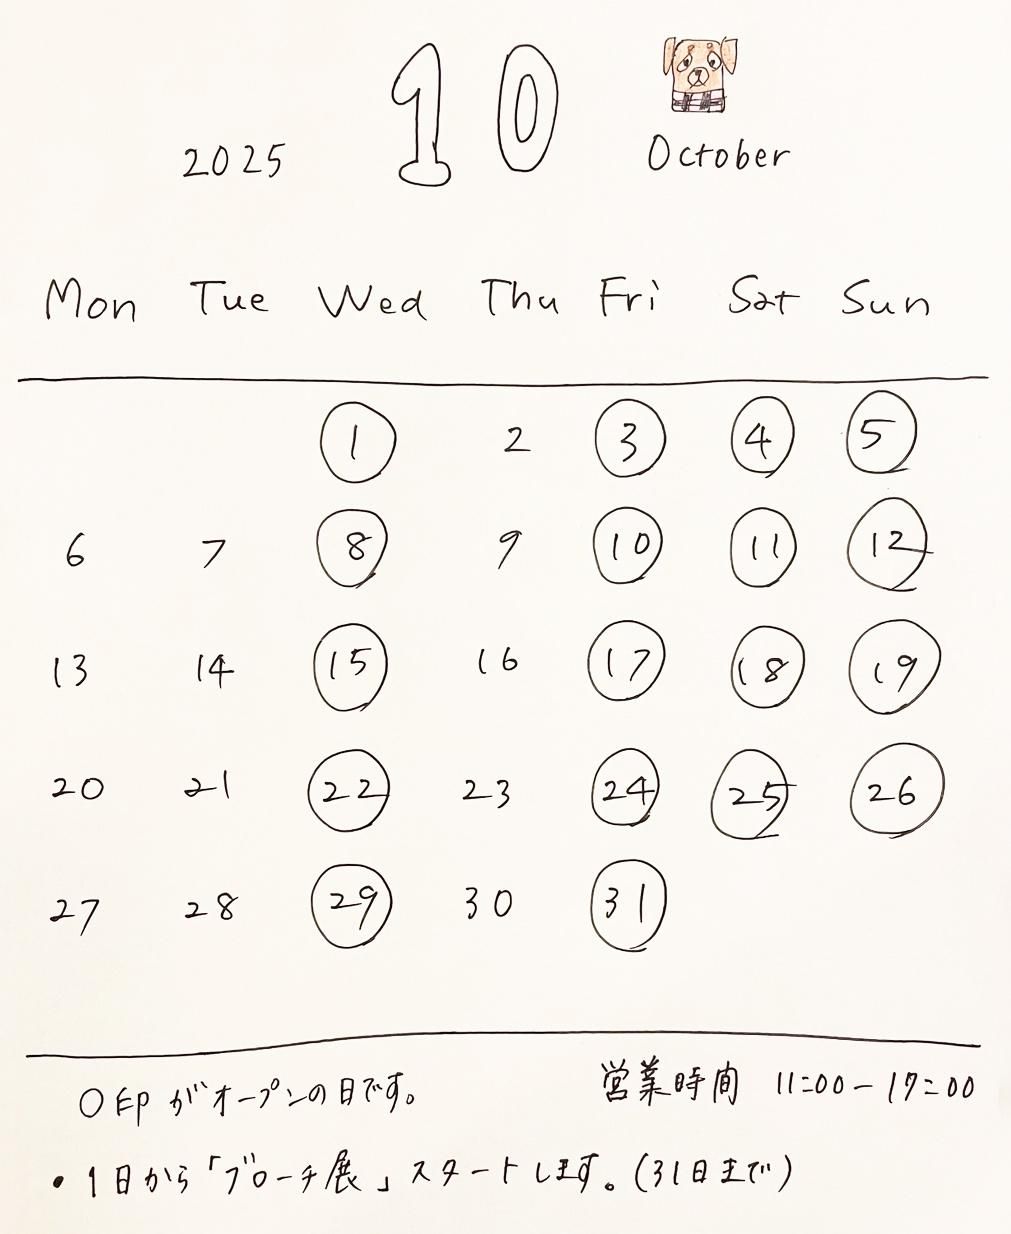 2025 10 October
Mon Tue Wed Thu Fri Sat Sun
1 2 3 4 5
6 7 8 9 10 11 12
13 14 15 16 17 18 19
20 21 22 23 24 25 26
27 28 29 30 31
○印がオープンの日です。 営業時間 11:00-17:00
・1日から「ブローチ展」スタートします。(31日まで)